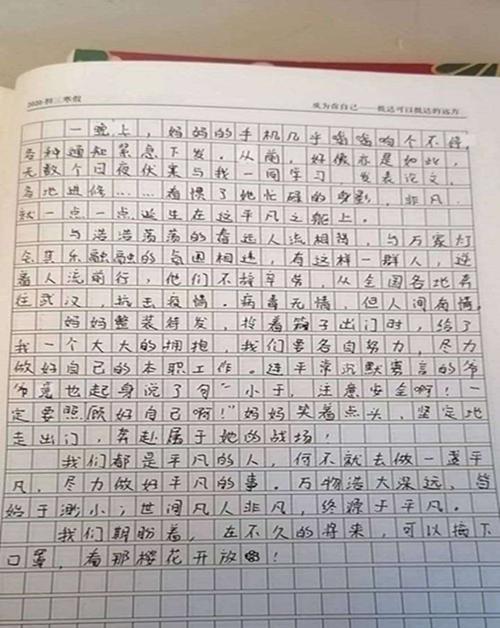 2020·初三寒假 成为你自己——抵达可以抵达的远方
一晚上，妈妈的手机几乎嗡嗡响个不停，
各种通知紧急下发。从前，好像亦是如此，
无数个日夜伏案与我一同学习、发表论文，
各地进修……看惯了她忙碌的身影，非凡
就一点一点诞生在这平凡之躯上。
与浩浩荡荡的春运人流相背，与万家灯
会其乐融融的氛围相违，有这样一群人，逆
着人流前行，他们不辞辛劳，从全国各地奔
往武汉，抗击疫情。病毒无情，但人间有情，
妈妈整装待发，拎着箱子出门时，给了
我一个大大的拥抱，我们要各自努力，尽力
做好自己的本职工作。连平常沉默寡言的爷
爷竟也起身说了句"小于，注意安全啊！一
定要照顾好自己啊！"妈妈笑着点头，坚定地
走出门，奔赴属于她的战场！
我们都是平凡的人，何不就去做一盏平
凡，尽力做好平凡的事。万物浩大深远，皆
始于渺小；世间凡人非凡，终源于平凡。
我们期盼着，在不久的将来，可以摘下
口罩，看那樱花开放！